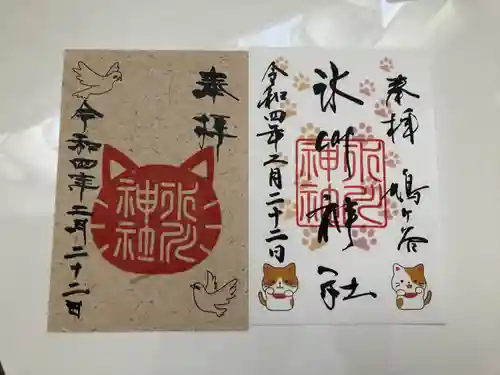 奉拝
氷川
神社
令和四年二月二十二日
奉拝
鳩ヶ谷
氷川神社
氷川
神社
令和四年二月二十二日